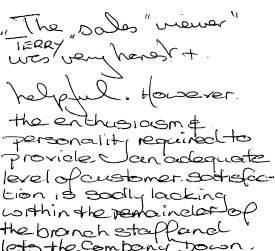 "The "sales "viewer"
TERRY
was very honest +
helpful. However.
the enthusiasm &
personality required to
provide an adequate
level of customer satisfac-
tion is sadly lacking
within the remainder of
the branch staff and
lets the Company down.